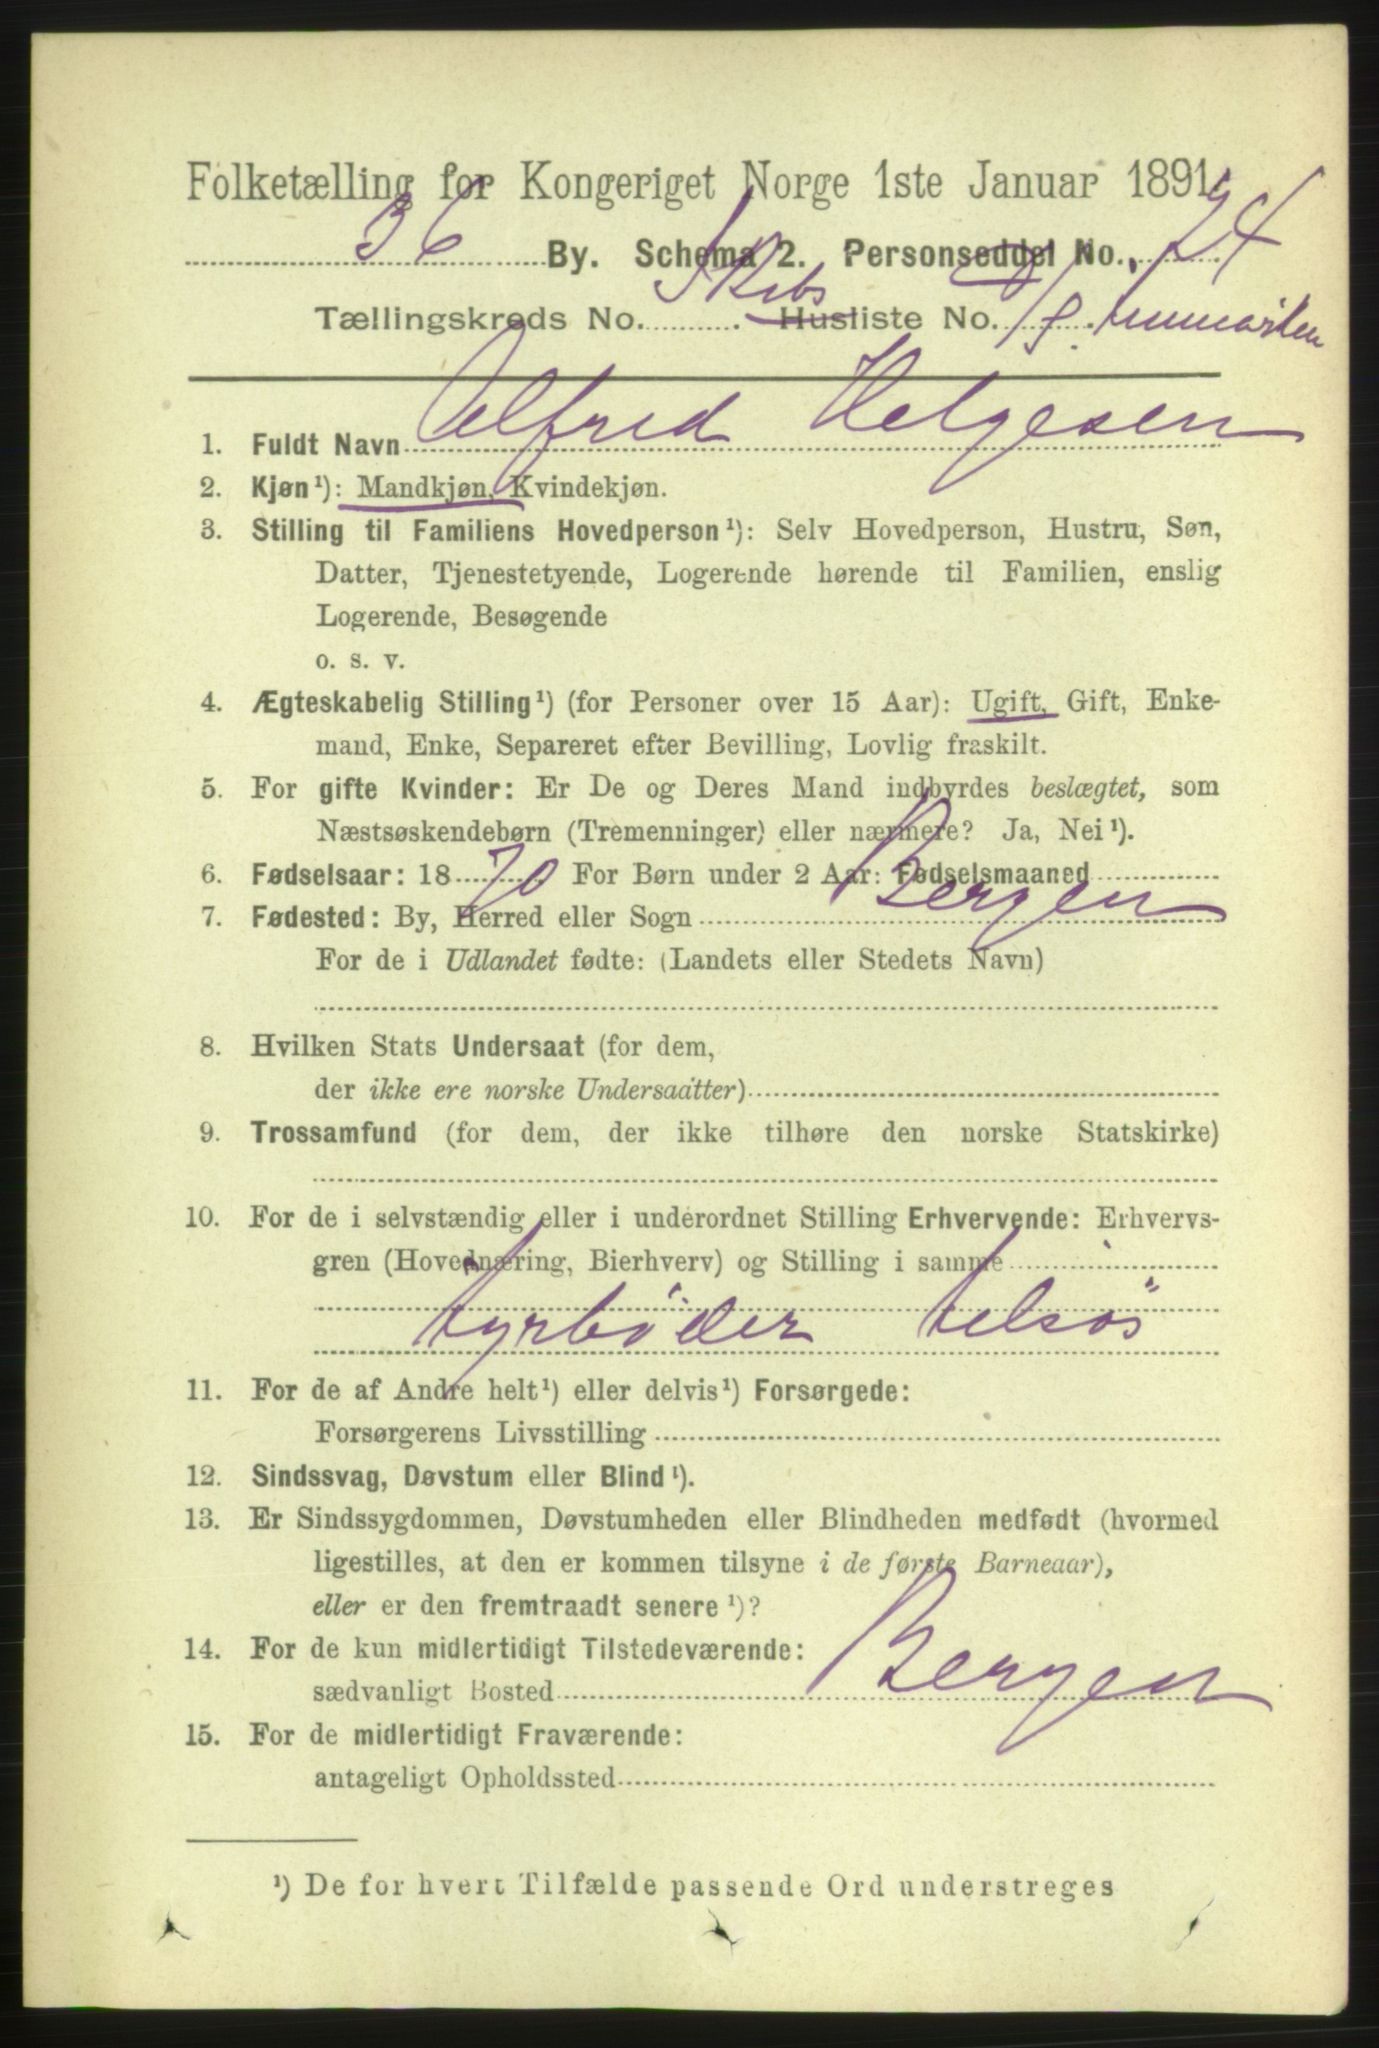 Folketælling for Kongeriget Norge 1ste Januar 1891.
36 By. Schema 2. Personseddel No. 24
Tællingskreds No. Skibs Husliste No.
1. Fuldt Navn Alfred Helgesen
2. Kjøn¹): Mandkjøn, Kvindekjøn.
3. Stilling til Familiens Hovedperson¹): Selv Hovedperson, Hustru, Søn,
Datter, Tjenestetyende, Logerende hørende til Familien, enslig
Logerende, Besøgende
o. s. v.
4. Ægteskabelig Stilling¹) (for Personer over 15 Aar): Ugift, Gift, Enke-
mand, Enke, Separeret efter Bevilling, Lovlig fraskilt.
5. For gifte Kvinder: Er De og Deres Mand indbyrdes beslægtet, som
Næstsøskendebørn (Tremenninger) eller nærmere? Ja, Nei¹).
6. Fødselsaar: 1870 For Børn under 2 Aar: Fødselsmaaned
7. Fødested: By, Herred eller Sogn Bergen
For de i Udlandet fødte: (Landets eller Stedets Navn)
8. Hvilken Stats Undersaat (for dem,
der ikke ere norske Undersaatter)
9. Trossamfund (for dem, der ikke tilhøre den norske Statskirke)
10. For de i selvstændig eller i underordnet Stilling Erhvervende: Erhvervs-
gren (Hovednæring, Bierhverv) og Stilling i samme
fyrbøder
11. For de af Andre helt¹) eller delvis¹) Forsørgede:
Forsørgerens Livsstilling
12. Sindssvag, Døvstum eller Blind¹).
13. Er Sindssygdommen, Døvstumheden eller Blindheden medfødt (hvormed
ligestilles, at den er kommen tilsyne i de første Barneaar),
eller er den fremtraadt senere¹)?
14. For de kun midlertidigt Tilstedeværende:
sædvanligt Bosted Bergen
15. For de midlertidigt Fraværende:
antageligt Opholdssted
¹) De for hvert Tilfælde passende Ord understreges